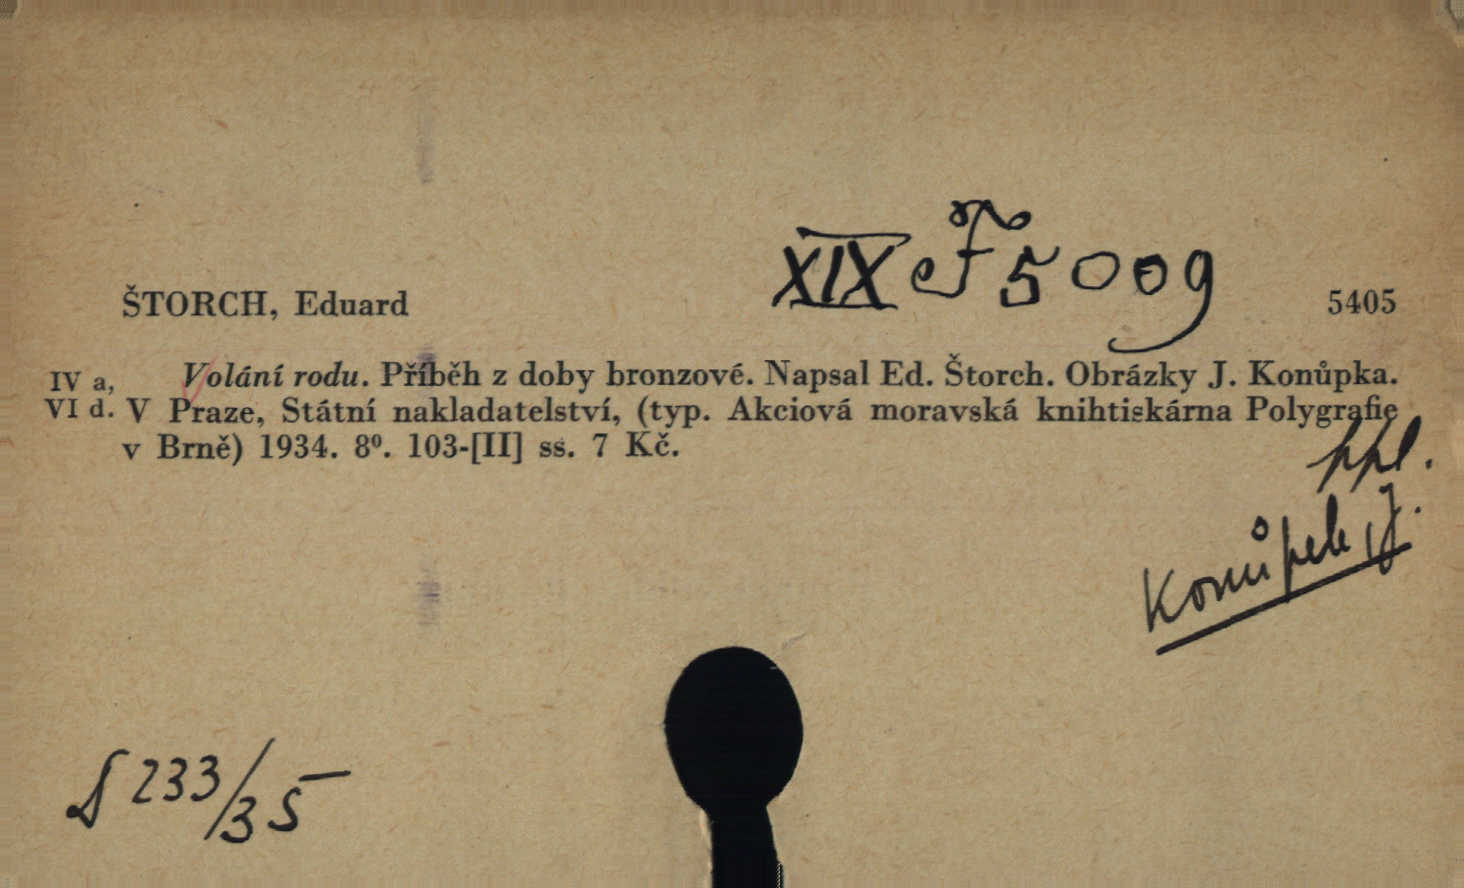 XIX e F 5009
ŠTORCH, Eduard 5405
IV a, Volání rodu. Příběh z doby bronzové. Napsal Ed. Štorch. Obrázky J. Konůpka.
VI d. V Praze, Státní nakladatelství, (typ. Akciová moravská knihtiskárna Polygrafie
v Brně) 1934. 8⁰. 103-[II] ss. 7 Kč.
ppl.
Konůpek J.
233/35